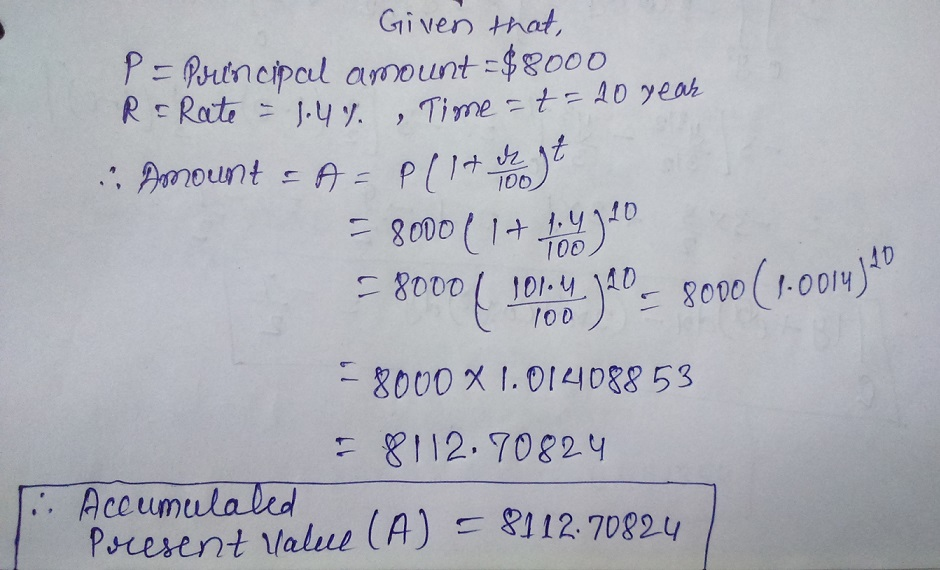 Given that,
P = Principal amount = $8000
R = Rate = 1.4 %. , Time = t = 10 year
∴ Amount = A = P(1+ r/100)^t
= 8000(1+ 1.4/100)^10
= 8000(101.4/100)^10 = 8000(1.0014)^10
= 8000 X 1.01408853
= 8112.70824
∴ Accumulated
Present Value (A) = 8112.70824